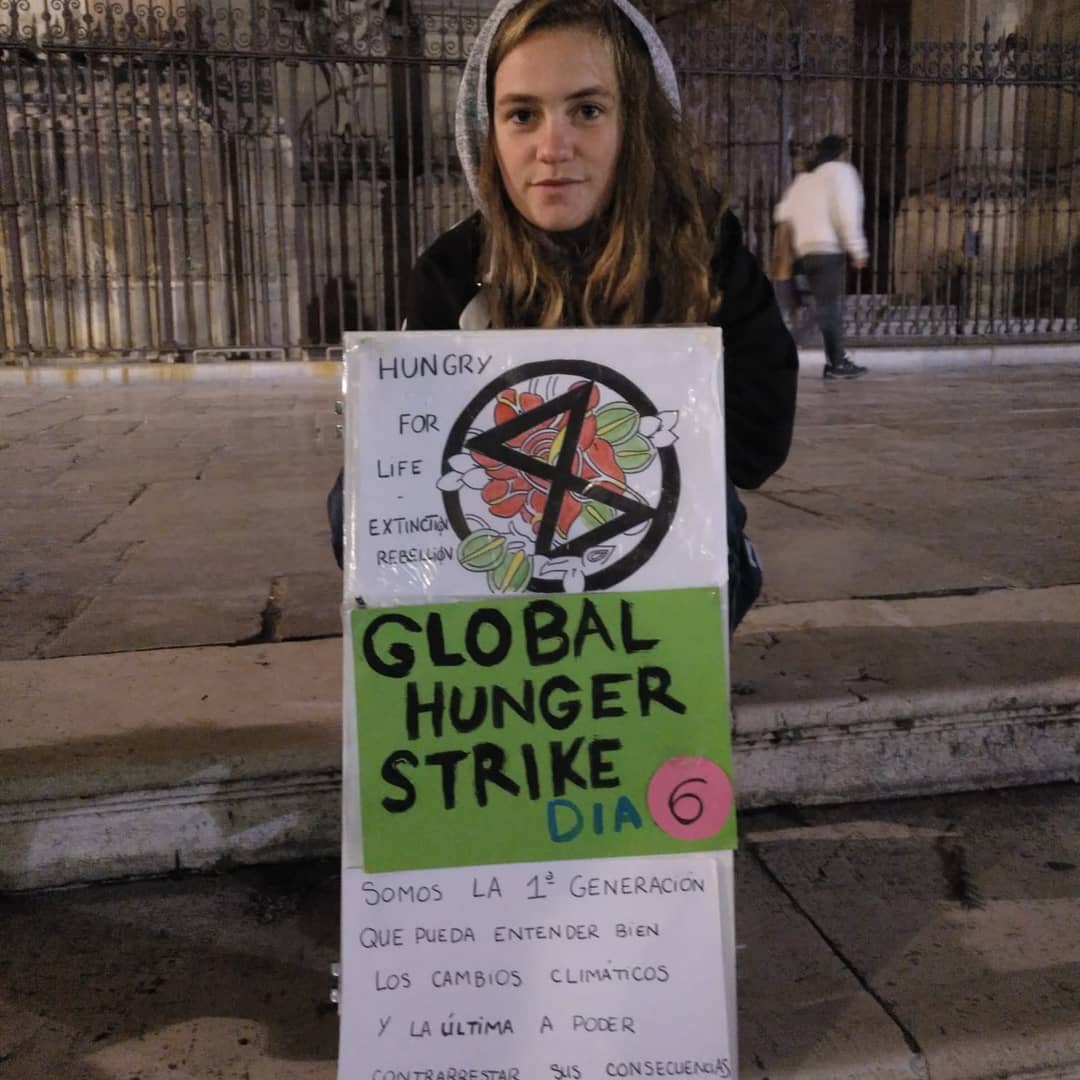 HUNGRY
FOR
LIFE
-
EXTINCTION
REBELLIÓN
GLOBAL
HUNGER
STRIKE
DIA 6
SOMOS LA 1ª GENERACIÓN
QUE PUEDA ENTENDER BIEN
LOS CAMBIOS CLIMÁTICOS
Y LA ÚLTIMA A PODER
CONTRARRESTAR SUS CONSECUENCIAS